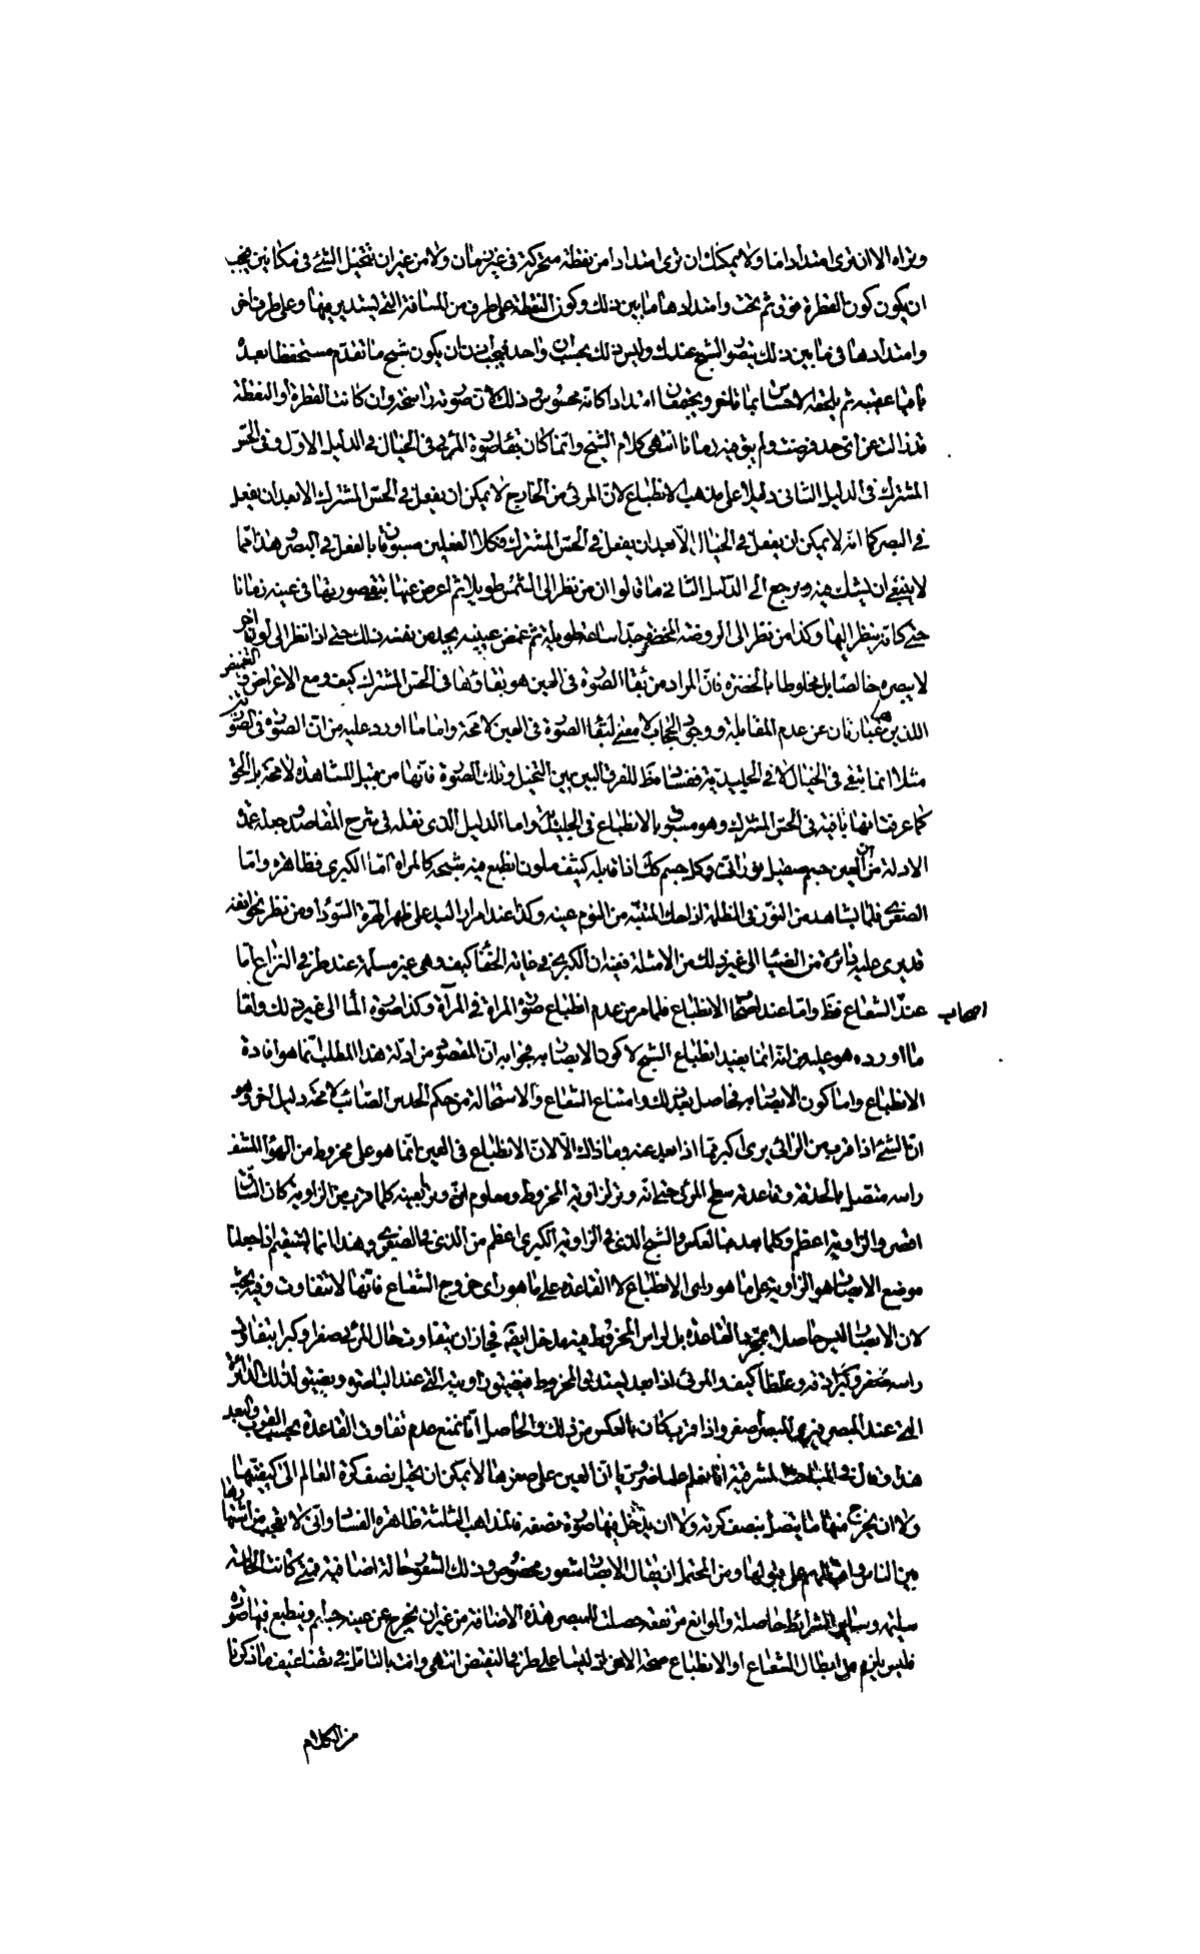 ونراه الا ان نرى امتدادا ما ولا يمكنك ان ترى امتدادا من نقطة متحركة فى غير زمان ولا من غير ان تتخيل الشئ فى مكانين فيجب
ان يكون كون القطرة فوق ثم تحت وامتدادها ما بين ذلك وكون النقطة على طرف من المسافة التى يستدير فيها وعلى طرف اخر
وامتدادها فى ما بين ذلك يتصور الشبح عندك وليس ذلك بحسبان واحد فيجب اذن ان يكون شبح ما تقدم مستحفظا بعده
باقيا عقيبه ثم يلحقه الاحساس بما تاخر ويجتمعان امتدادا كانه محسوس وذلك لان صورته راسخة وان كانت القطرة او النقطة
قد زالت عن اى حد فرضت ولم يبق فيه زمانا انتهى كلام الشيخ وانما كان بقاء صورة المرئى فى الخيال فى الدليل الاول وفى الحس
المشترك فى الدليل الثانى دليلا على مذهب الانطباع لان المرئى من الخارج لا يمكن ان يفعل فى الحس المشترك الا بعد ان يفعل
فى البصر كما انه لا يمكن ان يفعل فى الخيال الا بعد ان يفعل فى الحس المشترك فكلا الفعلين مسبوقان بالفعل فى البصر وهذا مما
لا ينبغى ان يشك فيه ويرجع الى الدليل الثانى ما قالوا ان من نظر الى الشمس طويلا ثم اعرض عنها تبقى صورتها فى عينه زمانا
حتى كانه ينظر اليها وكذا من نظر الى الروضة المخضرة جدا ساعة طويلة ثم غمض عينيه يجد من نفسه ذلك حتى اذا نظر الى لون اخر
لا يبصره خالصا بل مخلوطا بالخضرة فان المراد من بقاء الصورة فى العين هو بقاؤها فى الحس المشترك كيف ومع الاعراض والتغميض
اللذين هما عبارتان عن عدم المقابلة ووجود الحجاب لا معنى لبقاء الصورة فى العين لا محة واما ما اورد عليه من ان الصورة فى الصورتين
مثلا انما يبقى فى الخيال لا فى الجليدية فقد سقط للفرق البين بين التخيل وتلك الصورة فانها من قبيل المشاهدة لا محة بل الحق
كما عرفت انها باقية فى الحس المشترك وهو مسبوق بالانطباع فى الجليدية واما الدليل الذى نقله فى شرح المقاصد وجعله عمدة
الادلة من ان العين جسم صقيل نورانى وكل جسم كك اذا قابله كثيف ملون انطبع فيه شبحه كالمراة اما الكبرى فظاهرة واما
الصغرى فلما يشاهد من النور فى الظلمة اذا حك المتنبه من النوم عينه وكذا عند امرار اليد على ظهر الهرة السوداء ومن نظر نحو انفه
قد يرى عليه دائرة من الضياء الى غير ذلك من الامثلة ففيه ان الكبرى فى غاية الخفاء كيف وهى غير مسلمة عند طرفى النزاع اما
عند اصحاب الشعاع فظ واما عند اصحاب الانطباع فلما مر من عدم انطباع صورة المراة فى المرآة وكذا صورة الماء الى غير ذلك واما
ما اورده هو عليه من انه انما يفيد انطباع الشبح لا كون الابصار به فجوابه ان المقصود من ادلة هذا المطلب انما هو افادة
الانطباع واما كون الابصار به فحاصل بعد ذلك وامتناع الشعاع والاستحالة من حكم الحدس الصائب لا محة دليل اخر وهو
ان الشئ اذا قرب من الرائى يرى اكبر مما اذا بعد عنه وما ذاك الا لان الانطباع فى العين انما هو على مخروط من الهواء المشف
راسه متصل بالحدقة وقاعدته سطح المرئى حتى انه وتر لزاوية المخروط ومعلوم ان وترا بعينه كلما قرب من الزاوية كان الساق
اقصر والزاوية اعظم وكلما بعد فبالعكس والشبح الذى فى الزاوية الكبرى اعظم من الذى فى الصغرى وهذا انما يستقيم اذا جعلنا
موضع الابصار هو الزاوية على ما هو راى الانطباع لا القاعدة على ما هو راى خروج الشعاع فانها لا تتفاوت وفيه بحث
لان الابصار ليس حاصلا بمجرد القاعدة بل لراس المخروط فيه مدخل البتة فجاز ان يتفاوت حال المرئى صغرا وكبرا بتفاوت
راسه صغرا وكبرا دقة وغلظا كيف والمرئى اذا بعد يستدق المخروط فيضيق زاويته التى عند الباصرة ويضيق لذلك الدائرة
التى عند المبصر فيرى المبصر اصغر واذا قرب كان بالعكس من ذلك والحاصل انا نمنع عدم تفاوت القاعدة بحسب القرب والبعد
هذا وقال فى المباحث المشرقية انا نعلم علما ضروريا ان العين على صغرها لا يمكن ان يحيل نصف كرة العالم الى كيفيتها
ولا ان يخرج منها ما يتصل بنصف كرته ولا ان يدخل فيها صورة نصفه فالمذاهب الثلثة ظاهرة الفساد وانى لا تعجب من اشتهارها
بين الناس واقبالهم على قبولها ومن المحتمل ان يقال الابصار شعور مخصوص وذلك الشعور حالة اضافية فمتى كانت الحاسة
سليمة وساير الشرائط حاصلة والموانع مرتفعة حصلت للمبصر هذه الاضافة من غير ان يخرج عن عينه جسم او ينطبع فيها صورة
فليس يلزم من ابطال الشعاع او الانطباع صحة الاخر اذ ليسا على طرفى النقيض انتهى وانت بالتامل فى تضاعيف ما ذكرنا
من الكلام